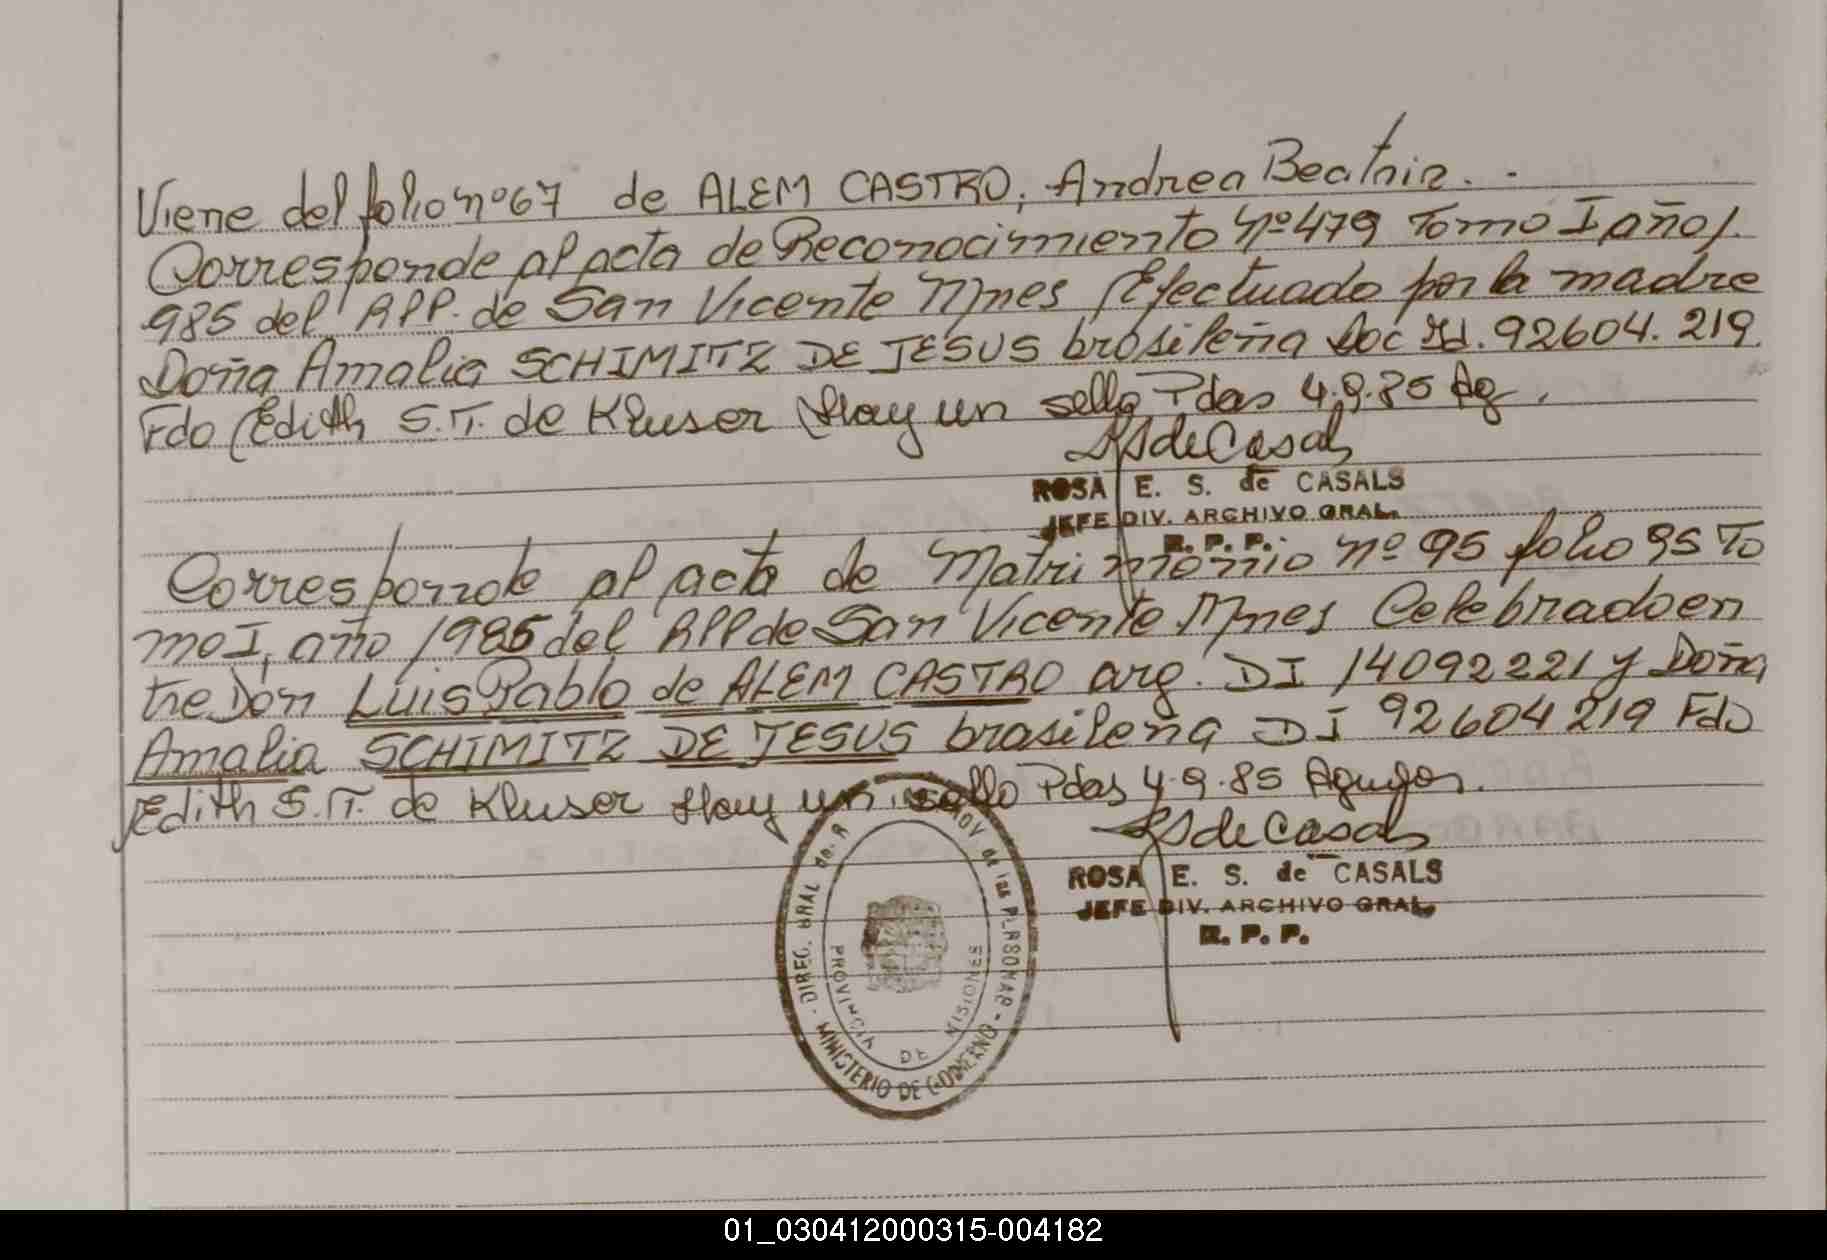 Viene del folio nº 67 de ALEM CASTRO, Andrea Beatriz. -
Corresponde al acta de Reconocimiento Nº 479 Tomo I año 1.
985 del RPP. de San Vicente Mnes Efectuado por la madre
Doña Amalia SCHIMITZ DE JESUS brasileña Doc Id. 92604.219.
Fdo Edith S.T. de Kluser Hay un sello Pdas 4.9.85 Ag.
RSdeCasals
ROSA E. S. de CASALS
JEFE DIV. ARCHIVO GRAL.
R. P. P.
Corresponde al acta de Matrimonio nº 95 folio 95 To
mo I, año 1985 del RPP de San Vicente Mnes Celebrado en
tre Don Luis Pablo de ALEM CASTRO arg. DI 14092221 y Doña
Amalia SCHIMITZ DE JESUS brasileña DI 92604219 Fdo
Edith S.T. de Kluser Hay un sello Pdas 4.9.85
RSdeCasals
ROSA E. S. de CASALS
JEFE DIV. ARCHIVO GRAL.
R. P. P.
DIREC. GRAL de R PROV. de las PERSONAS -
MINISTERIO DE GOBIERNO -
PROVINCIA DE MISIONES
01_030412000315-004182